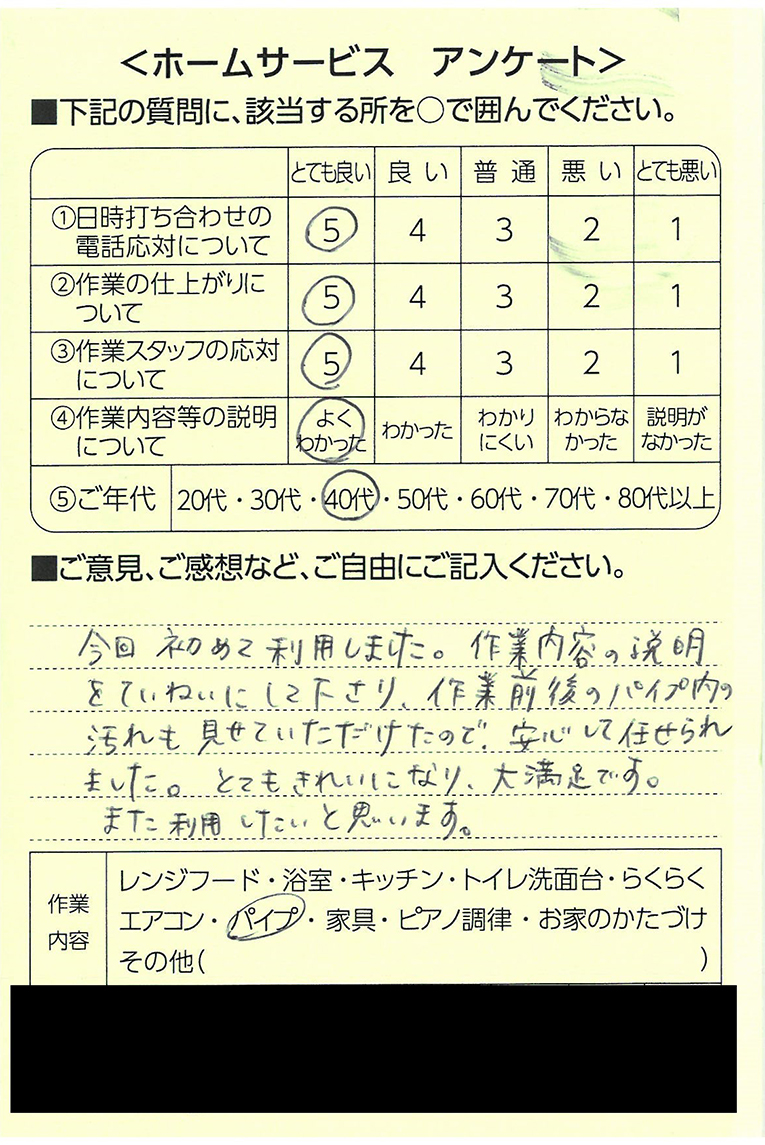 ＜ホームサービス　アンケート＞
■下記の質問に、該当する所を○で囲んでください。
とても良い 良い 普通 悪い とても悪い
①日時打ち合わせの
電話応対について 5 4 3 2 1
②作業の仕上がりに
ついて 5 4 3 2 1
③作業スタッフの応対
について 5 4 3 2 1
④作業内容等の説明 よく わかり わからな 説明が
について わかった わかった にくい かった なかった
⑤ご年代 20代・30代・40代・50代・60代・70代・80代以上
■ご意見、ご感想など、ご自由にご記入ください。
今回 初めて利用しました。作業内容の説明
をていねいにして下さり、作業前後のパイプ内の
汚れも見せていただけたので、安心して任せられ
ました。とてもきれいになり、大満足です。
また利用したいと思います。
作業
内容
レンジフード・浴室・キッチン・トイレ洗面台・らくらく
エアコン・パイプ・家具・ピアノ調律・お家のかたづけ
その他( )